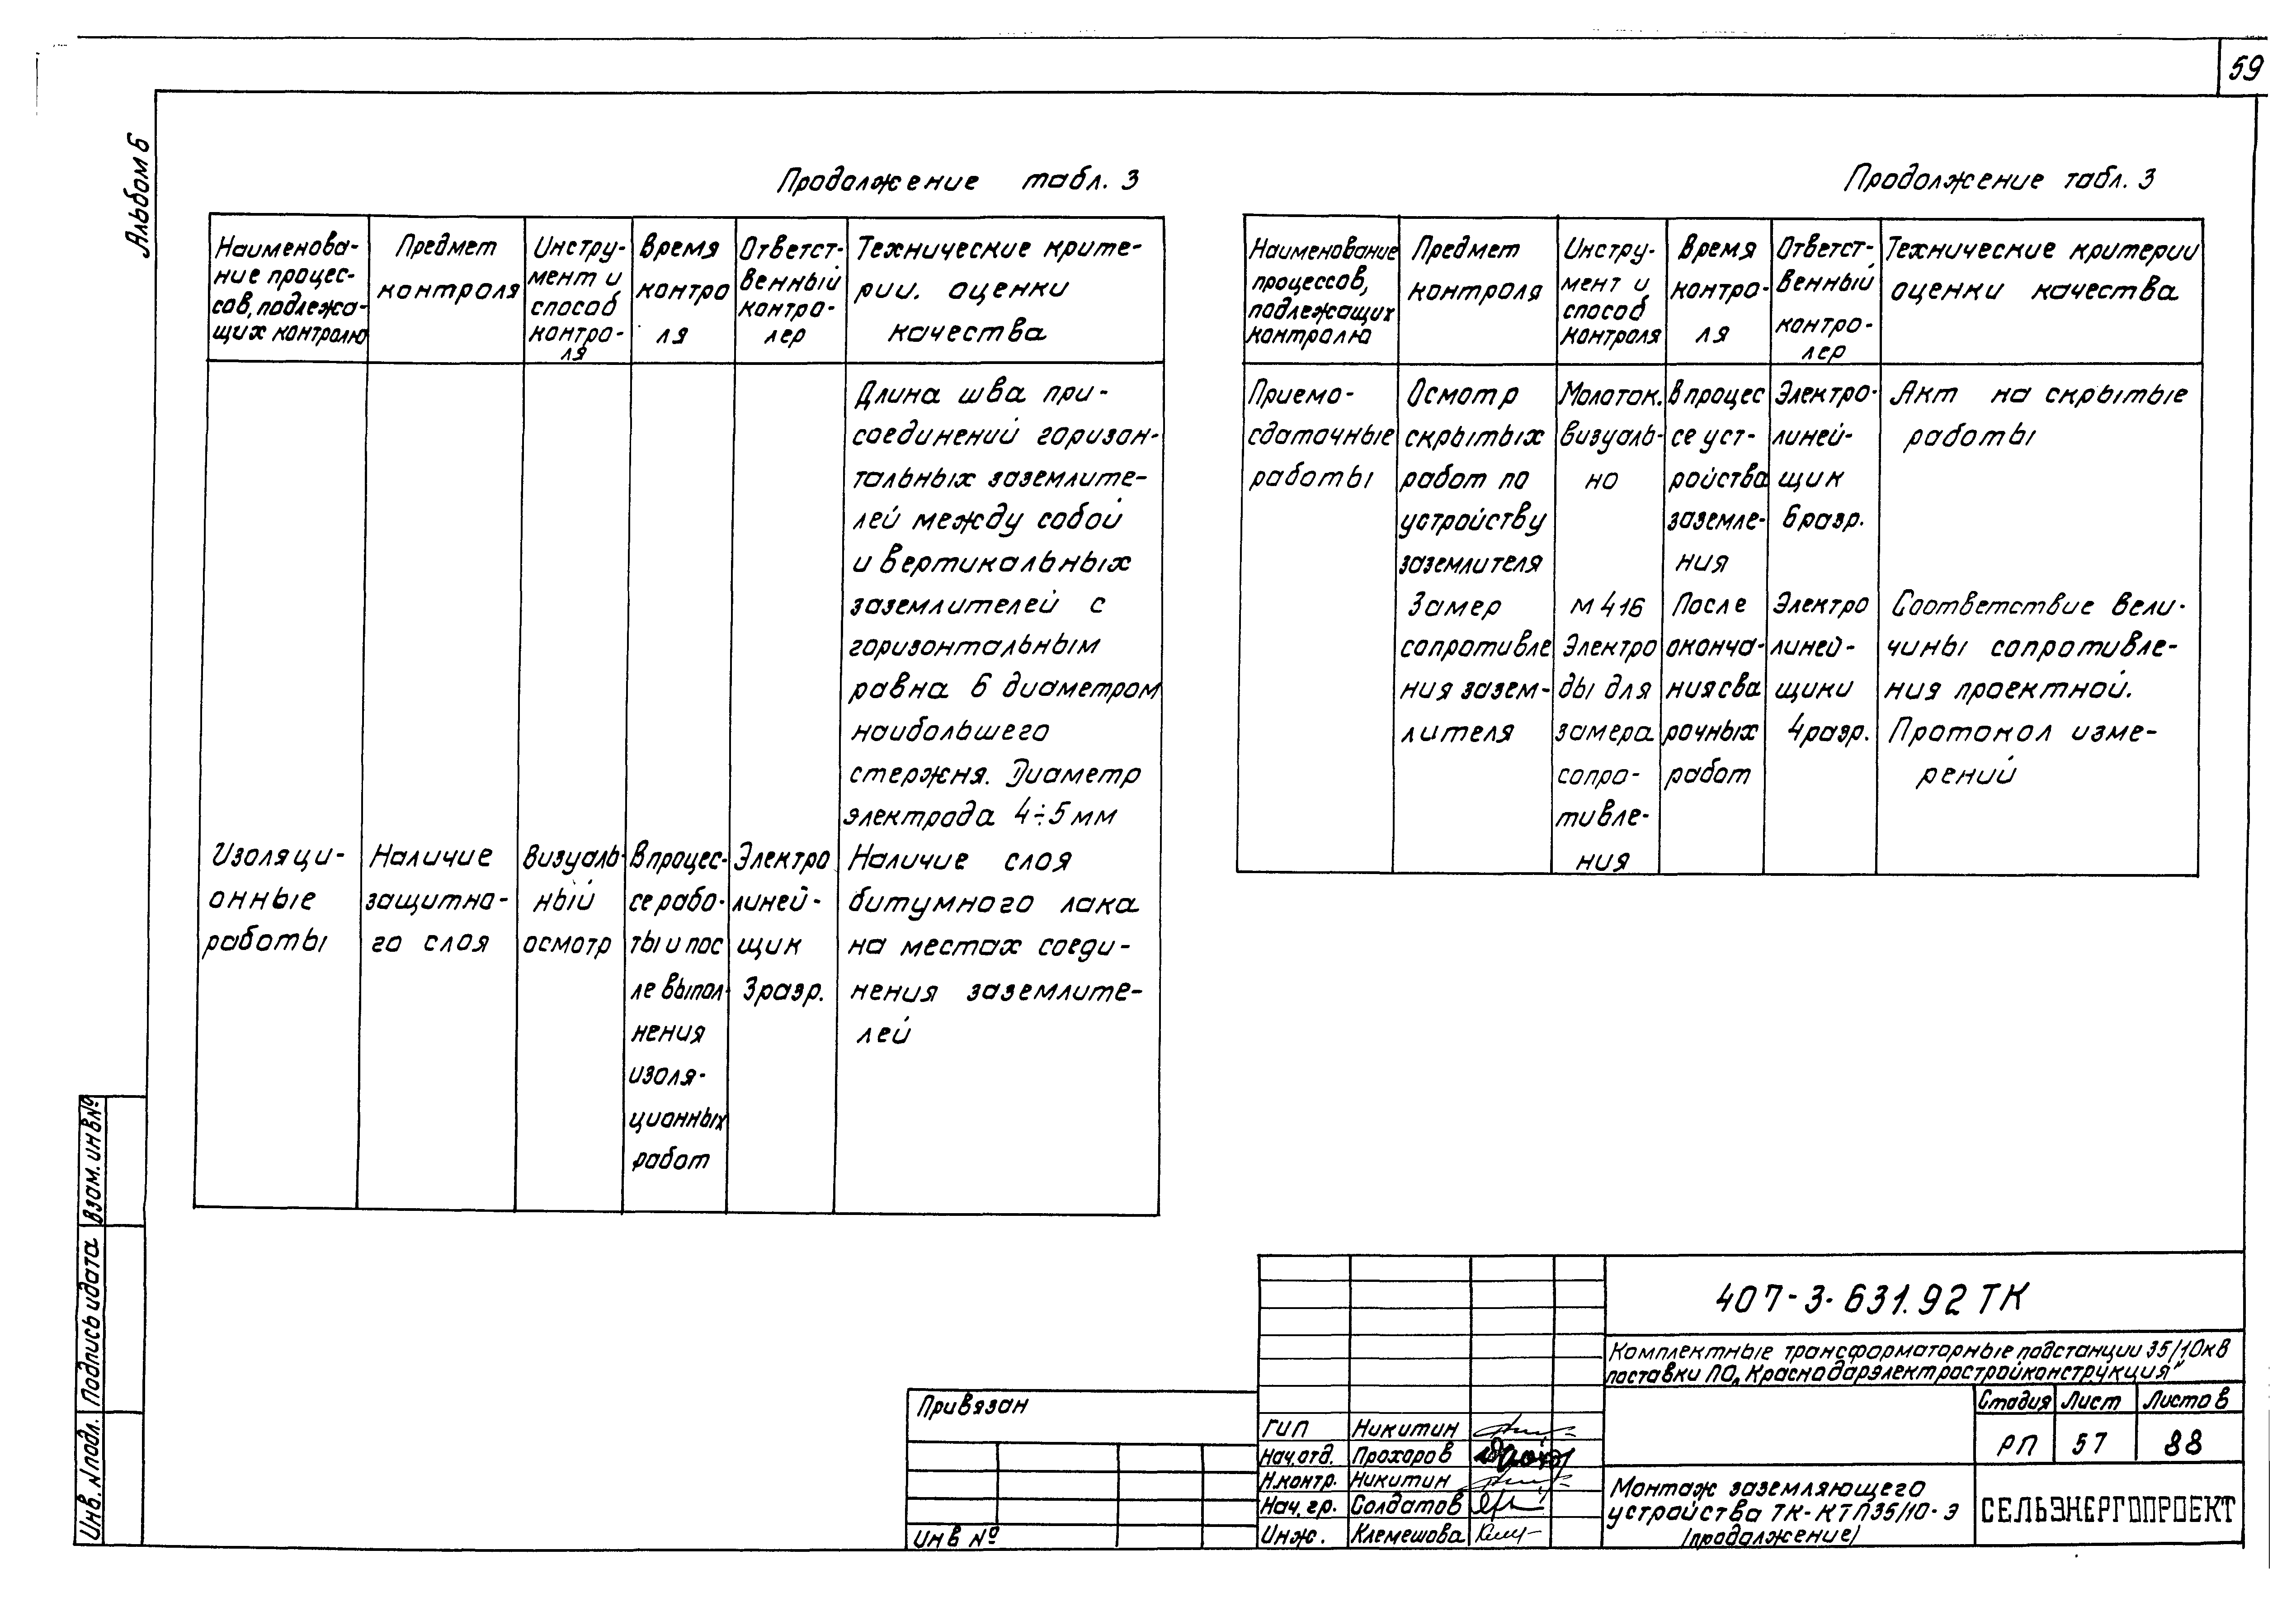 59
Альбом 6
Продолжение табл. 3
Наименова-
ние процес-
сов, подлежа-
щих контролю
Предмет
контроля
Инстру-
мент и
способ
контро-
ля
Время
контро
ля
Ответст-
венный
контро-
лер
Технические крите-
рии. оценки
качества
Длина шва при-
соединений горизон-
тальных заземлите-
лей между собой
и вертикальных
заземлителей с
горизонтальным
равна 6 диаметром
наибольшего
стержня. Диаметр
электрода 4÷5 мм
Изоляци-
онные
работы
Наличие
защитно-
го слоя
Визуаль-
ный
осмотр
В процес-
се рабо-
ты и пос
ле выпол-
нения
изоля-
ционных
работ
Электро
линей-
щик
3 разр.
Наличие слоя
битумного лака
на местах соеди-
нения заземлите-
лей
Продолжение табл. 3
Наименование
процессов,
подлежащих
контролю
Предмет
контроля
Инстру-
мент и
способ
контроля
Время
контро-
ля
Ответст-
венный
контро-
лер
Технические критерии
оценки качества
Приемо-
сдаточные
работы
Осмотр
скрытых
работ по
устройству
заземлителя
Молоток.
Визуаль-
но
В процес
се уст-
ройства
заземле-
ния
Электро-
линей-
щик
6 разр.
Акт на скрытые
работы
Замер
сопротивле
ния зазем-
лителя
М 416
Электро
ды для
замера
сопро-
тивле-
ния
После
оконча-
ния сва
рочных
работ
Электро
линей-
щики
4 разр.
Соответствие вели-
чины сопротивле-
ния проектной.
Протокол изме-
рений
Инв. N подл. Подпись и дата Взам. инв №
Привязан
Инв №
ГИП Никитин
Нач. отд. Прохоров
Н.контр. Никитин
Нач. гр. Солдатов
Инж. Клемешова
407-3-631.92 ТК
Комплектные трансформаторные подстанции 35/10кВ
поставки ПО „Краснодарэлектростройконструкция"
Стадия Лист Листов
РП 57 88
Монтаж заземляющего
устройства ТК-КТП35/10-Э
/продолжение/
СЕЛЬЭНЕРГОПРОЕКТ